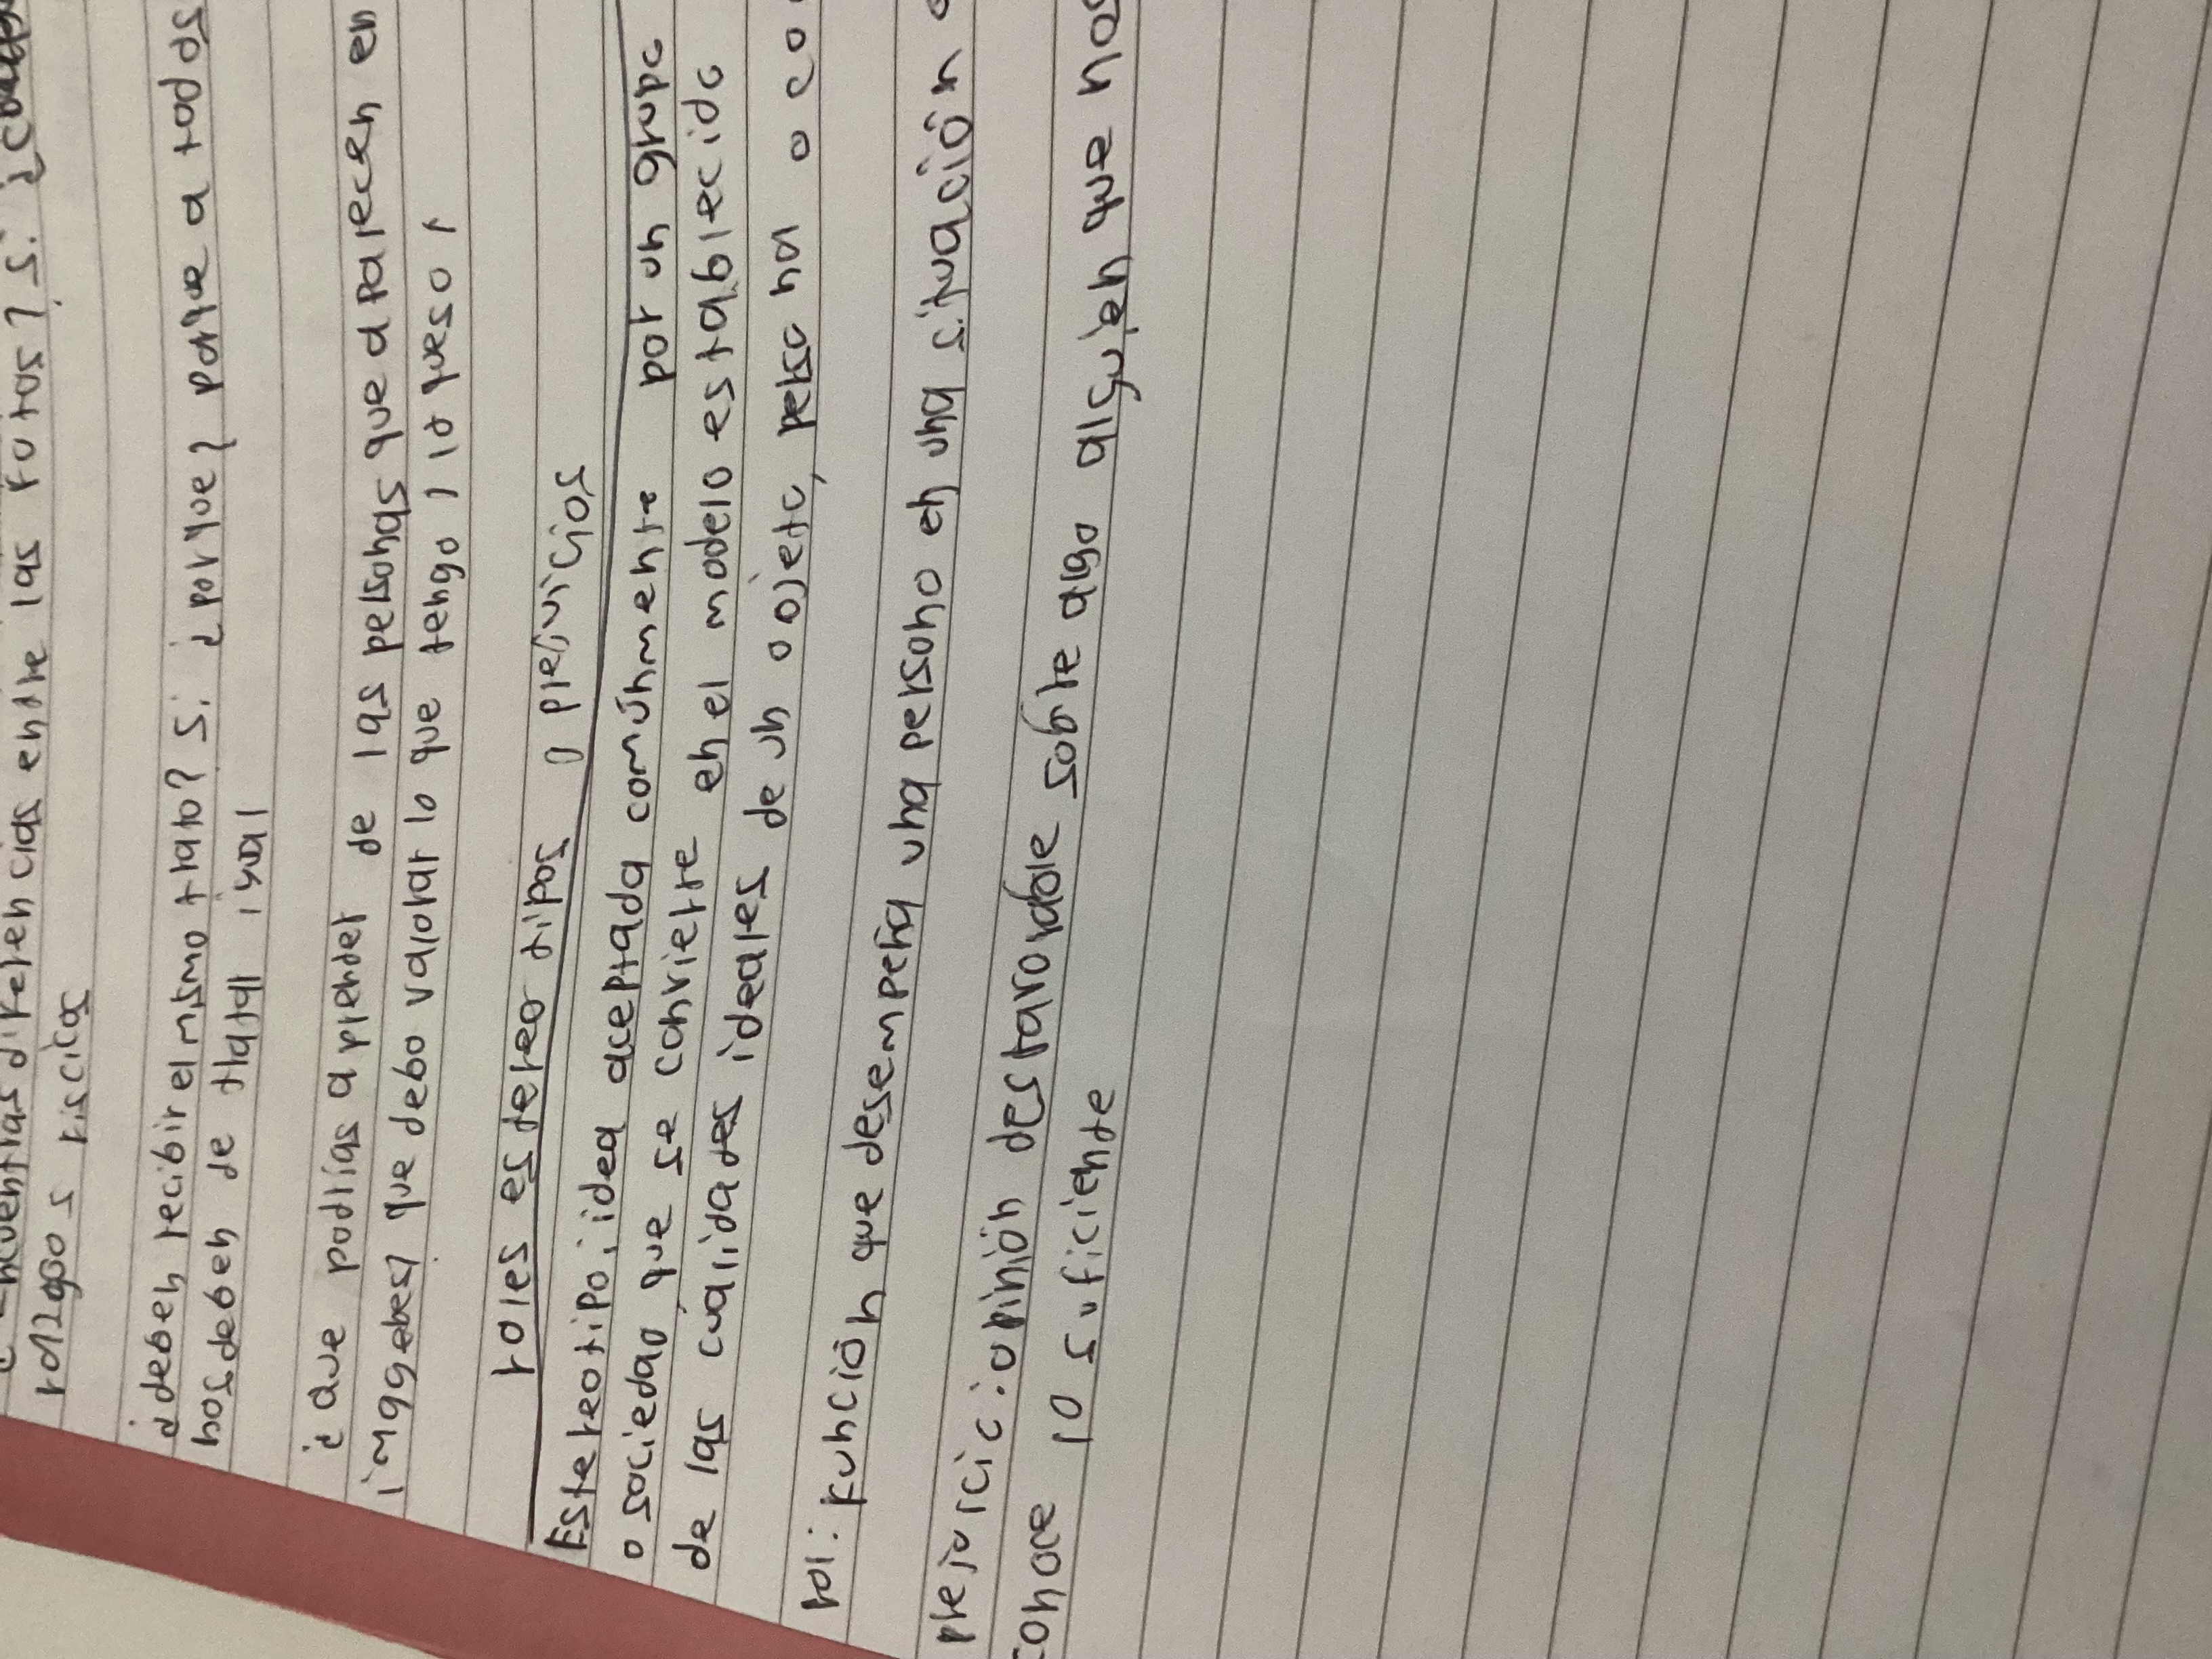 encuentras diferencias entre las fotos? si ¿cuales
razgos fisicos
¿deben recibir el mismo trato? si ¿porque? porque a todos
nos deben de tratar igual
¿que podrias aprender de las personas que aparecen en
imagenes? que debo valorar lo que tengo
roles estereo tipos o prejuicios
Estereotipo: idea aceptada comúnmente por un grupo
o sociedad que se convierte en el modelo establecido
de las cualidades ideales de un objeto, persona o co
rol: función que desempeña una persona en una situación o
prejuicio: opinión desfavorable sobre algo alguien que no s
conoce lo suficiente